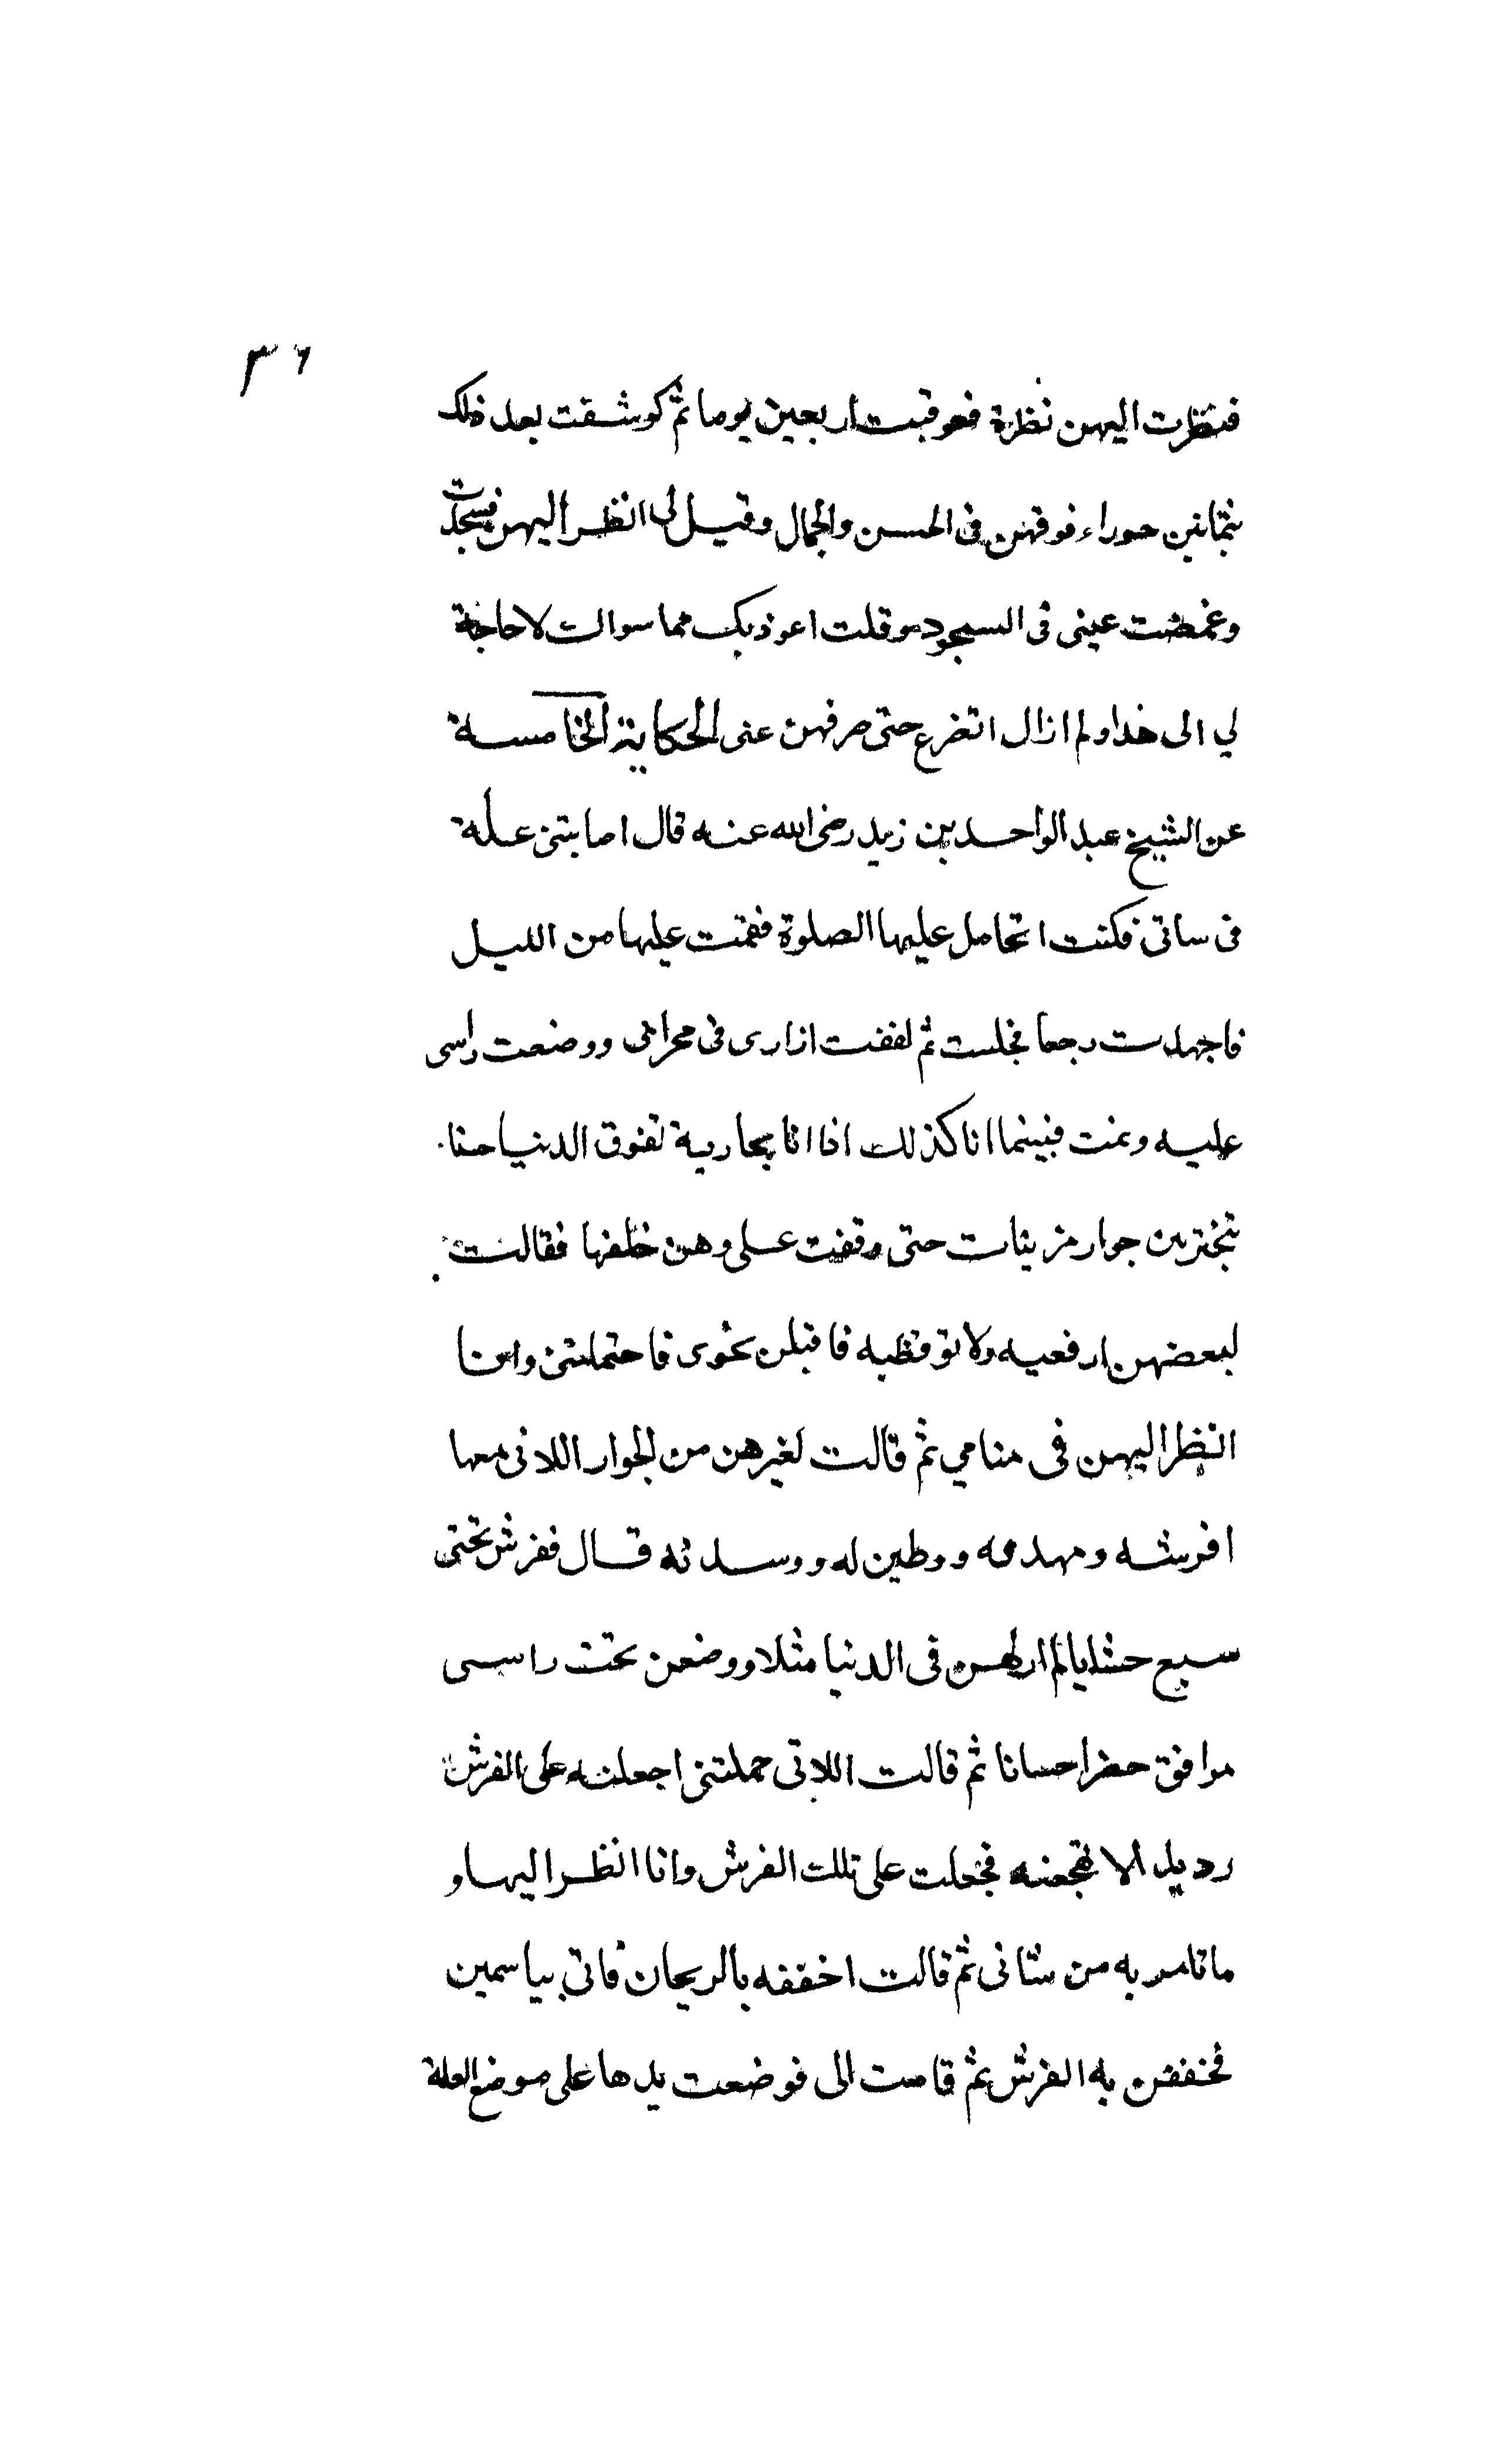 ٣٦
فنظرت اليهن نظرة فعوقبت اربعين يوما ثم كوشفت بعد ذلك
بثمانين حوراء فوقهن فى الحسن والجمال وقيل لى انظر اليهن فسجدت
وغمضت عينى فى السجود وقلت اعوذ بك مما سواك لا حاجة
لي الى هذا ولم ازال اتضرع حتى صرفهن عنى الحكاية الخامسة
عن الشيخ عبد الواحد بن زيد رضى الله عنه قال اصابتنى علة
فى ساقى فكنت اتحامل عليها الصلوة فقمت عليها من الليل
فاجهدت رجعا فجلست ثم لففت ازارى فى محرابى ووضعت راسى
عليه ونمت فبينما انا كذلك اذا انا بجارية تفوق الدنيا حسنا
تتبختر بين جوار مزينات حتى وقفت على وهن خلفها فقالت
لبعضهن ارفعيه ولا توقظيه فاقبلن نحوى فاحتملتنى وانا
انظر اليهن فى منامي ثم قالت لغيرهن من الجوار اللاتى معها
افرشنه ومهدنه ووطين له ووسدنه قال ففرش تحتى
سبع حشايا لم ار لهن فى الدنيا مثلا ووضعن تحت راسى
مرافق خضرا حسانا ثم قالت اللاتى حملتنى اجعلنه على الفرش
رويدا لا تهجنه فجعلت على تلك الفرش وانا انظر اليها و
ما تامر به من شانى ثم قالت احففنه بالريحان فاتى بياسمين
فحففن به الفرش ثم قامت الى فوضعت يدها على موضع العلة